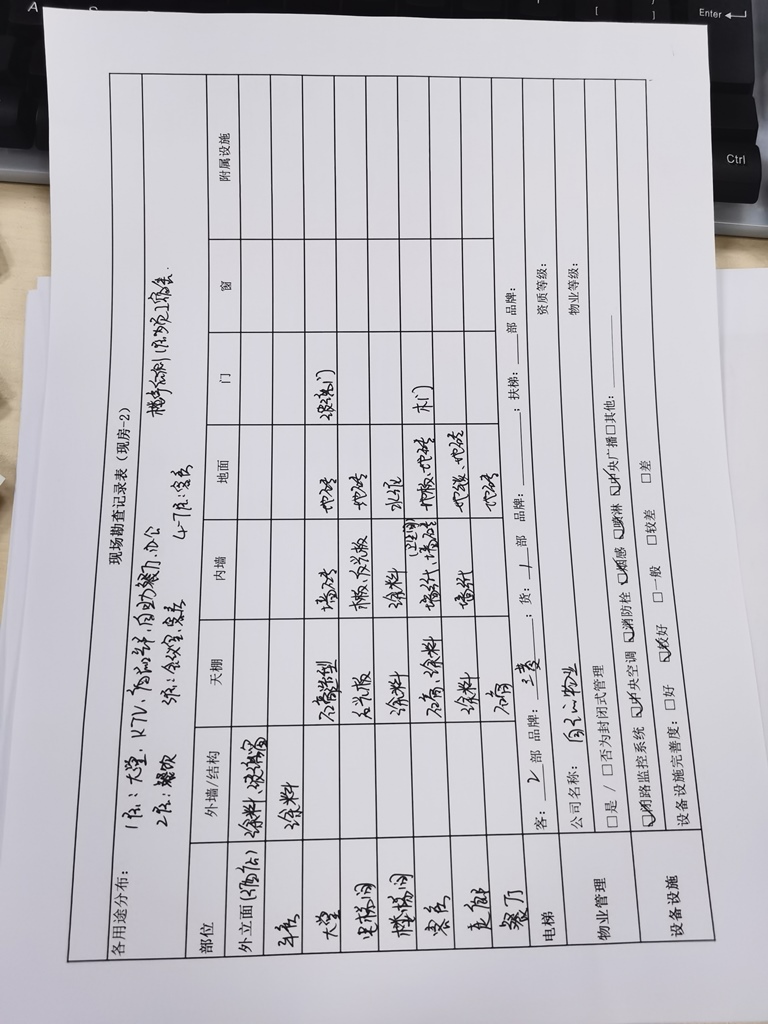 现场勘查记录表（现房-2）
各用途分布：
1层：大堂、KTV、自助餐厅、办公
2层：餐饮 3层：会议室、客房 4-7层：客房
部位 外墙/结构 天棚 内墙 地面 门 窗 附属设施
外立面(酒店) 涂料、玻璃窗
涂料
大堂 石膏造型 墙砖 地砖 玻璃门
电梯间 地砖
楼梯间 涂料 涂料 水泥
客房 石膏、涂料 墙纸、墙砖(卫生间) 地板、地砖 木门
走廊 涂料 墙纸 地毯、地砖
餐厅 石膏 地砖
电梯 客：2部 品牌：三菱；货：1部 品牌：；扶梯：部 品牌：
物业管理 公司名称： 资质等级：
□是 / □否为封闭式管理 物业等级：
设备设施 ☑闭路监控系统 ☑中央空调 ☑消防栓 ☑烟感 ☑喷淋 ☑中央广播 □其他：
设备设施完善度：□好 ☑较好 □一般 □较差 □差
Enter
Ctrl